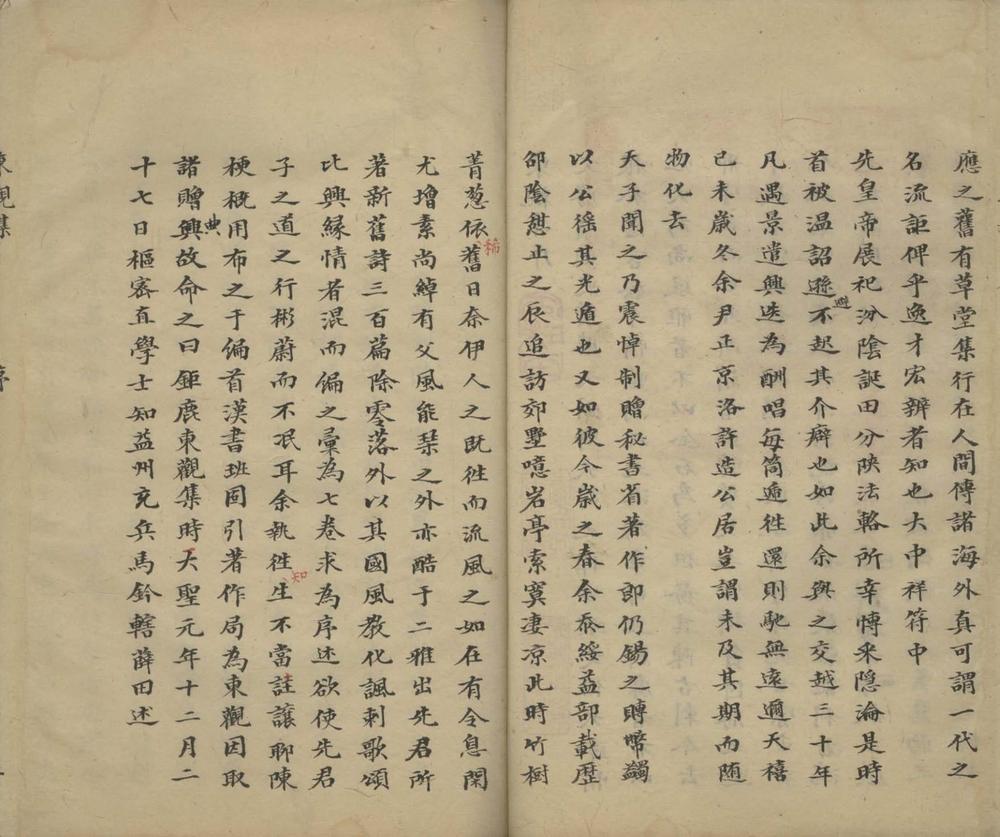 應之舊有草堂集行在人間傳諸海外真可謂一代之
名流詎俾乎逸才宏辨者知也大中祥符中
先皇帝展祀汾陰誕田分陝法輅所幸愽采隠淪是時
首被温詔遜不起其介癖也如此余與之交越三十年
避
凡遇景遣興迭為酬唱每筒遞徃還則馳無遠邇天禧
已未歲冬余尹正京洛許造公居豈謂未及其期而随
物化去
天子聞之乃震悼制贈秘書省著作郎仍錫之賻幣蠲
以公徭其光遁也又如彼今嵗之春余忝綏益部載歴
邵陰憇止之辰追訪郊墅噫岩亭索寞凄凉此時竹樹
菁葱依舊日奈伊人之既徃而流風之如在有令息閑
稀
尤增素尚綽有父風能琹之外亦酷于二雅出先君所
著新舊詩三百篇除零落外以其國風教化諷刺歌頌
比興緣情者混而偏之彚為七卷求為序述欲使先君
子之道之行彬蔚而不泯耳余執徃生不當註讓聊陳
知
梗概用布之于偏首漢書班固引著作局為東觀因取
諸贈興故命之曰鉅鹿東觀集時天聖元年十二月二
典
十七日樞密直學士知益州充兵馬鈐轄薛田述
東觀集
序